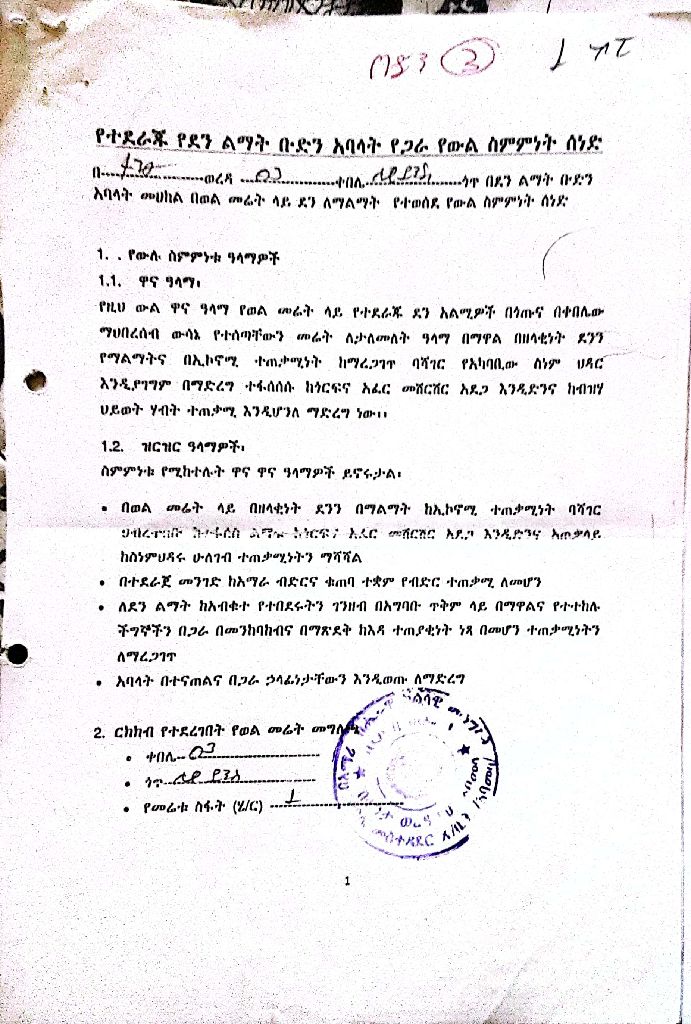 ቡድን 2
የተደራጁ የደን ልማት ቡድን አባላት የጋራ የውል ስምምነት ሰነድ
በ....................ወረዳ ....................ቀበሌ....................ጎጥ በደን ልማት ቡድን
አባላት መሀከል በወል መሬት ላይ ደን ለማልማት የተወሰደ የውል ስምምነት ሰነድ
1. . የውሉ ስምምነቱ ዓላማዎች
1.1. ዋና ዓላማ፡
የዚህ ውል ዋና ዓላማ የወል መሬት ላይ የተደራጁ ደን አልሚዎች በጎጡና በቀበሌው
ማህበረሰብ ውሳኔ የተሰጣቸውን መሬት ለታለመለት ዓላማ በማዋል በዘላቂነት ደንን
የማልማትና በኢኮኖሚ ተጠቃሚነት ከማረጋገጥ ባሻገር የአካባቢው ስነም ህዳር
እንዲያገግም በማድረግ ተፋሰሰሱ ከጎርፍና አፈር መሸርሸር አደጋ እንዲድንና ከብዝሃ
ህይወት ሃብት ተጠቃሚ እንዲሆንለ ማድረግ ነው፡፡
1.2. ዝርዝር ዓላማዎች፡
ስምምነቱ የሚከተሉት ዋና ዋና ዓላማዎች ይኖሩታል፡
• በወል መሬት ላይ በዘላቂነት ደንን በማልማት ከኢኮኖሚ ተጠቃሚነት ባሻገር
ከጎርፍና አፈር መሸርሸር አደጋ እንዲድንና አጠቃላይ
ከስነምህዳሩ ሁለገብ ተጠቃሚነትን ማሻሻል
• በተደራጀ መንገድ ከአማራ ብድርና ቁጠባ ተቋም የብድር ተጠቃሚ ለመሆን
• ለደን ልማት ከአብቁተ የተበደሩትን ገንዘብ በአግባቡ ጥቅም ላይ በማዋልና የተተከሉ
ችግኞችን በጋራ በመንከባከብና በማጽደቅ ከእዳ ተጠያቂነት ነጻ በመሆን ተጠቃሚነትን
ለማረጋገጥ
• አባላት በተናጠልና በጋራ ኃላፊነታቸውን እንዲወጡ ለማድረግ
2. ርክክብ የተደረገበት የወል መሬት መግለጫ
• ቀበሌ....................
• ጎጥ ....................
• የመሬቱ ስፋት (ሄ/ር) --------------------
1